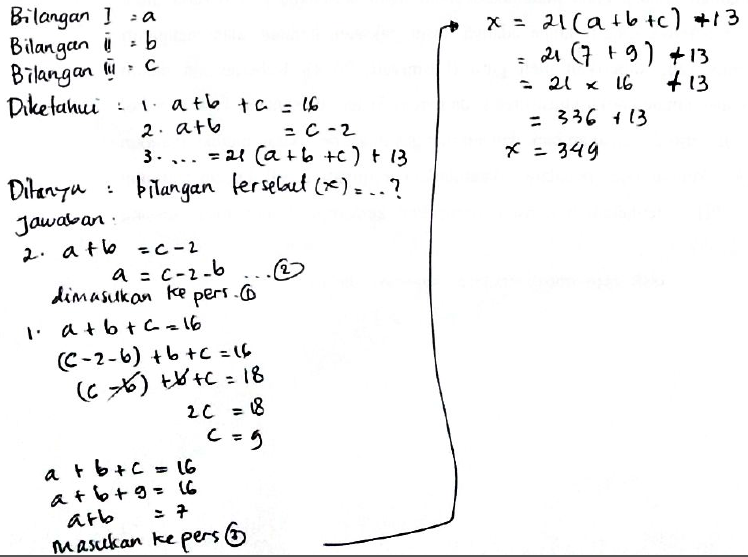 Bilangan I : a
Bilangan ii : b
Bilangan iii : c
Diketahui : 1. a+b +c = 16
2. a+b = c-2
3. ... = 21 (a+b+c) + 13
Ditanya : bilangan tersebut (x) = ...?
Jawaban :
2. a+b = c-2
a = c-2-b ...②
dimasukan ke pers.①
1. a+b+c=16
(c-2-b) +b+c =16
(c -b) +b+c = 18
2c = 18
c = 9
a + b + c = 16
a + b + 9 = 16
a+b = 7
masukan ke pers ③
x = 21(a+b+c) +13
= 21 (7 + 9) +13
= 21 x 16 +13
= 336 +13
x = 349